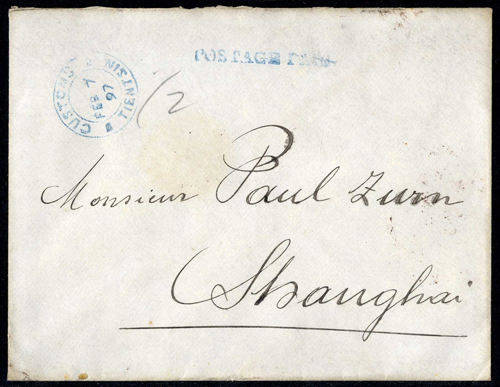 POSTAGE PAID
CUSTOMS TIENTSIN
FEB 7
97
1/2
Monsieur Paul Zurn
Shanghai